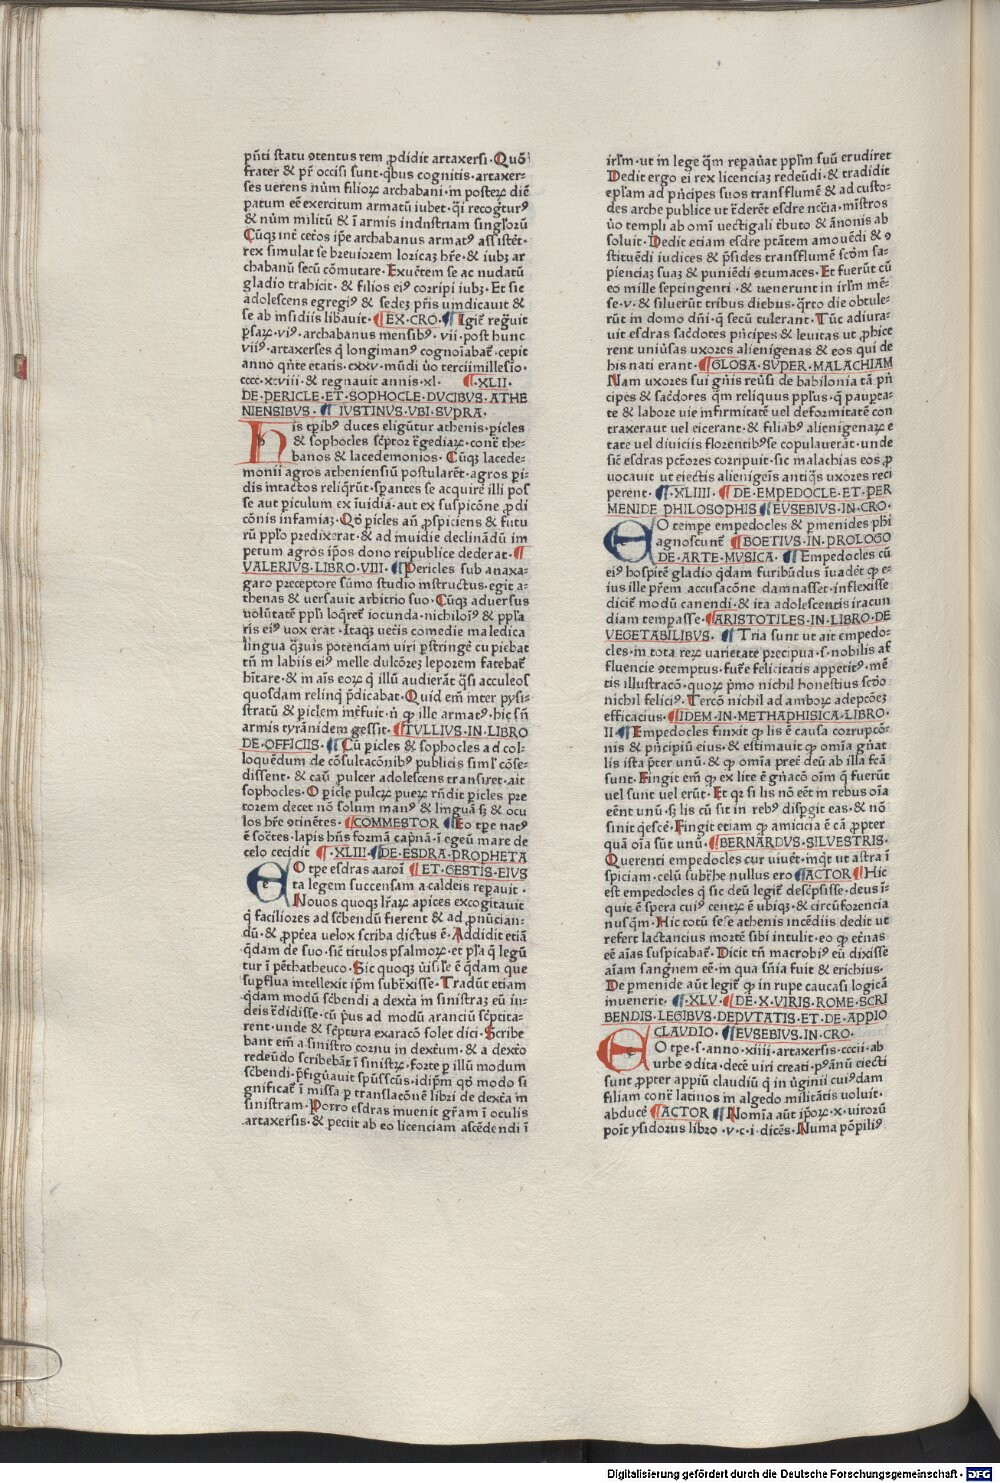 pñti statu ꝯtentus rem ꝓdidit artaxersi · Quõ
frater & pr̃ occisi sunt · qͥbus cognitis · artaxer⸗
ses uerens nũm filioꝝ archabani · in posteꝝ diẽ
patum eẽ exercitum armatũ iubet · qͥi recogͣturꝰ
& nũm militũ & ĩ armis indnstriam singl̃orũ
Cũqꝫ int̃ cet̃os ip̃e archabanus armatꝰ assistẽt ·
rex simulat se breuiorem loricaꝫ hr̃e · & iubꝫ ar
chabanũ secũ cõmutare · Exuẽtem se ac nudatũ
gladio trahicit · & filios eiꝰ corripi iubꝫ · Et sic
adolescens egregiꝰ & sedeꝫ pr̃is uındicauit &
se ab insidiis libauit · ¶ EX · CRO · ¶ Igit̃ reg̃uit
ꝑsaꝝ · viꝰ · archabanus mensibꝰ · vii · post hunc
viiꝰ · artaxerses q̃ longimanꝰ cognoĩabat̃ · cepit
anno qñte etatis · cxxv · mũdi ùo terciimillesio ·
cccc · x·viii · & regnauit annis · xl · ¶ · XLII ·
DE · PERICLE · ET · SOPHOCLE · DVCIBVS · ATHE
NIENSIBVS · ¶ IVSTINVS · VBI · SVPRA ·
His tp̃ibꝰ duces eligũtur athenis · picles
& sophocles sc̃ptor t̃gediaꝝ · cont̃ the⸗
banos & lacedemonios · Cũqꝫ lacede⸗
monii agros atheniensiũ postularẽt · agros pi⸗
dis intactos reliq̃rũt · sꝑantes se acquire illi pos
se aut piculum ex ĩuidia · aut ex suspicõne ꝓdi
cõnis infamiaꝫ · Qõ picles añ ꝓspiciens & futu
rũ pplõ predixerat · & ad inuidie declinãdũ im
petum agros ip̃os dono reipublice dederat · ¶
VALERIVS · LIBRO · VIII · ¶ Pericles sub anaxa⸗
garo preceptore sũmo studio instructus · egit a⸗
thenas & uersauit arbitrio suo · Cũqꝫ aduersus
volũtatẽ ppl̃i loq̃ret̃ iocunda · nichiloĩꝰ & ppl̃a
ris eiꝰ uox erat · Itaqꝫ uet̃is comedie maledica
lingua qͣꝫuis potenciam uiri ꝑstringẽ cupiebat
tñ in labiis eiꝰ melle dulcõreꝫ leporem fatebat̃
hĩtare · & in aĩs eoꝝ q̃ illũ audierãt qͣsi acculeos
quosdam relinq̃ p̃dicabat · Quid em̃ inter pysi⸗
stratũ & piclem int̃fuit · ñ ꝙ ille armatꝰ · hic sñ
armis tyrãnidem gessit · ¶ TVLLIVS · IN · LIBRO
DE · OFFICIIS · ¶ Cũ picles & sophocles ad col⸗
loquẽdum de cõsultacõnibꝰ publicis siml̃ cõse⸗
dissent · & caũ pulcer adolescens transiret · ait
sophocles · O picle pulcꝝ pueꝝ rñdit picles pre
torem decet nõ solum manꝰ & linguã sꝫ & ocu
los hr̃e ꝯtinẽtes · ¶ COMMESTOR ¶ Eo tꝑe natꝰ
ẽ socͬtes · lapis hñs formã capͥnã · ĩ egeũ mare de
celo cecidit ¶ · XLIII · ¶ DE · ESDRA · PROPHETA
EO tꝑe esdras aaroĩ ¶ ET · GESTIS · EIVS
ta legem succensam a caldeis reꝑauit ·
Nouos quoqꝫ lr̃aꝝ apices excogitauit
q̃ faciliores ad sc̃bendũ fierent & ad ꝓnũcian⸗
dũ · & ꝓpt̃ea uelox scriba dictus ẽ · Addidit etiã
qͣdam de suo · sic̃ titulos psalmoꝝ · et pl̃a q̃ legũ
tur ĩ pẽthatheuco · Sic quoqꝫ ùisil̃e ẽ qͣdam que
suꝑflua intellexit ip̃m subt̃xisse · Tradũt etiam
qͣdam modũ sc̃bendi a dext̃a in sinistraꝫ eũ in⸗
deis t̃didisse · cũ pͥus ad modũ aranciũ sc̃ptita⸗
rent · unde & sc̃ptura exaracõ solet dici · Scribe
bant em̃ a sinistro cornu in dext̃um · & a dext̃o
redeũdo scribebãt ĩ sinist̃ꝝ · forte p illũ modum
sc̃bendi · p̃figùauit spũssc̃us · idip̃m qõ modo si
gnificat̃ ĩ missa p translacõne libri de dext̃a in
sinistram · Porro esdras inuenit gr̃am ĩ oculis
artaxersis · & peciit ab eo licenciam ascẽdendi ĩ
irl̃m · ut in lege q̃m repaùat ppl̃m suũ erudiret
Dedit ergo ei rex licenciaꝫ redeũdi · & tradidit
ep̃lam ad pͥncipes suos transflumẽ & ad custo⸗
des arche publice ut t̃derẽt esdre nc̃cĩa · mĩstros
ùo templi ab omĩ uectigali tͥbuto & ãnonis ab
soluit · Dedit etiam esdre ptãtem amouẽdi & ꝯ
stituẽdi iudices & p̃sides transflumẽ scd̃m sa⸗
pienciaꝫ suaꝫ & puniẽdi ꝯtumaces · Et fuerũt cũ
eo mille septingenti · & uenerunt in irl̃m mẽ⸗
se · v · & siluerũt tribus diebus · qͣrto die obtule⸗
rũt in domo dñi · q̃ secũ tulerant · Tũc adiura⸗
uit esdras sac̃dotes pͥncipes & leuitas ut ꝓhice
rent uniùsas uxores alienigenas & eos qui de
his nati erant · ¶ GLOSA · SVPER · MALACHIAM
Nam uxores sui gñis reùsi de babilonia tã pͥn
cipes & sac̃dores qͣm reliquus ppl̃us · q̃ paupta⸗
te & labore uie infirmitatẽ uel deformitatẽ con
traxeraut uel eicerant · & filiabꝰ alienigenaꝝ e
tate uel diuiciis florentibꝰ se copulauerãt · unde
sic̃ esdras pct̃ores corripuit · sic malachias eos ꝓ
uocauit ut eiectis alienigeĩs antiqͣs uxores reci
perent · ¶ · XLIIII · ¶ DE · EMPEDOCLE · ET · PER
MENIDE PHILOSOPHIS ¶ EVSEBIVS · IN · CRO ·
EO tempe empedocles & ꝑmenides phĩ
agnoscunt̃ ¶ BOETIVS · IN · PROLOGO
DE · ARTE · MVSICA · ¶ Empedocles cũ
eiꝰ hospitẽ gladio qͥdam furibũdus ĩuadẽt ꝙ e⸗
ius ille pr̃em accusacõne damnasset · inflexisse
dicit̃ modũ canendi · & ita adolescentis iracun
diam tempasse · ¶ ARISTOTILES · IN · LIBRO · DE
VEGETABILIBVS · ¶ Tria sunt ut ait empedo⸗
cles · in tota reꝝ varietate precipua · s · nobilis af
fluencie ꝯtemptus · futẽ felicitatis appetitꝰ · mẽ
tis illustracõ · quoꝝ pͥmo nichil honestius scd̃o
nichil feliciꝰ · Tercõ nichil ad amboꝝ adepcõeꝫ
efficacius · ¶ IDEM · IN · METHAPHISICA · LIBRO ·
II ¶ Empedocles finxit ꝙ lis ẽ causa corrupcõ⸗
nis & pͥncipiũ eius · & estimauit ꝙ omĩa gñat
lis ista pͣter unũ · & ꝙ omĩa preẽ deũ ab illa fc̃ã
sunt · Fingit em̃ ꝙ ex lite ẽ gñacõ oĩm q̃ fuerũt
vel sunt vel erũt · Et qꝛ si lis nõ eẽt in rebus oĩa
eẽnt unũ · sꝫ lis cũ sit in rebꝰ disꝑgit eas · & nõ
sinit qͥescẽ · Fingit etiam ꝙ amicicia ẽ cã ꝓpter
quã oĩa sũt unũ · ¶ BERNARDVS · SILVESTRIS ·
Querenti empedocles cur uiuẽt · inqͥt ut astra ĩ
spiciam · celũ subt̃he nullus ero ¶ ACTOR ¶ Hic
est empedocles q̃ sic deũ legit̃ desc̃psisse · deus ĩ⸗
quit ẽ spera cuiꝰ centꝝ ẽ ubiqꝫ · & circũforencia
nusqͣm · Hic totũ sese athenis incẽdiis dedit ut
refert lactancius mortẽ sibi intulit · eo ꝙ et̃nas
eẽ aĩas suspicabat̃ · Dicit tñ macrobiꝰ eũ dixisse
aĩam sangͥnem eẽ · in qua sñĩa fuit & erichius ·
De pmenide aũt legit̃ ꝙ in rupe caucasi logicã
inuenerit · ¶ · XLV · ¶ DE · X · VIRIS · ROME · SCRI
BENDIS · LEGIBVS · DEPVTATIS · ET · DE · APPIO
CLAVDIO · ¶ EVSEBIVS · IN · CRO ·
EO tꝑe · s · anno · xiiii · artaxersis · cccii · ab
urbe ꝯdita · decẽ uiri creati · pͥꝰ ãnũ eiecti
sunt ꝓpter appiũ claudiũ q̃ in ùginii cuiꝰdam
filiam cont̃ latinos in algedo militãtis uoluit ·
abducẽ ¶ ACTOR ¶ Nomĩa aũt ip̃oꝝ · x · uirorũ
poĩt ysidorus libro · v · c · i · dicẽs · Numa põpiliꝰ
Digitalisierung gefördert durch die Deutsche Forschungsgemeinschaft · DFG